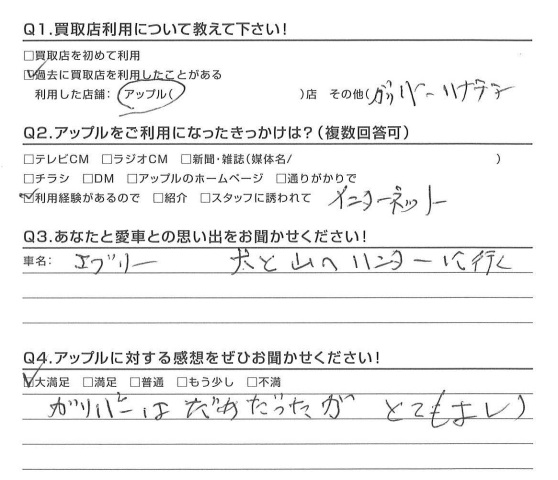 Q1.買取店利用について教えて下さい!
□買取店を初めて利用
☑過去に買取店を利用したことがある
利用した店舗: アップル( )店 その他(ガリバー ハナテン
Q2.アップルをご利用になったきっかけは?(複数回答可)
□テレビCM □ラジオCM □新聞・雑誌(媒体名/ )
□チラシ □DM □アップルのホームページ □通りがかりで
☑利用経験があるので □紹介 □スタッフに誘われて インターネット
Q3.あなたと愛車との思い出をお聞かせください!
車名: エブリー 犬と山へハンターに行く
Q4.アップルに対する感想をぜひお聞かせください!
☑大満足 □満足 □普通 □もう少し □不満
ガリバーはだめだったが とてもよい